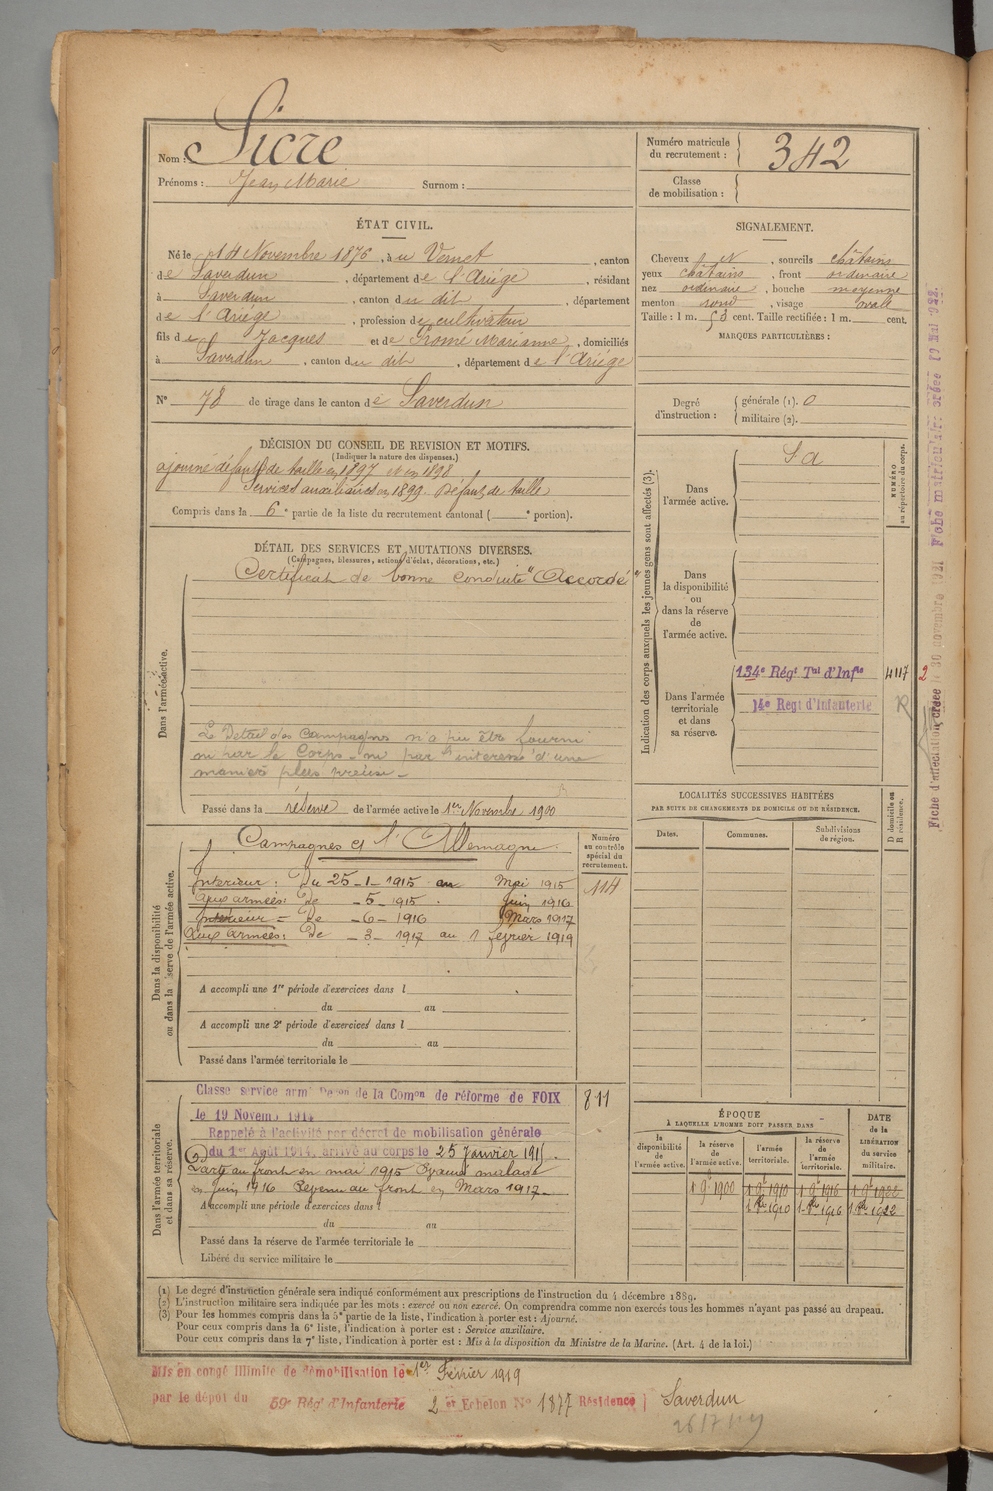 Nom : Sicre
Prénoms : Jean Marie Surnom :
Numéro matricule du recrutement : 342
Classe de mobilisation :
ÉTAT CIVIL.
Né le 14 Novembre 1876, à u Vernet, canton
de Saverdun, département de l'Ariége, résidant
à Saverdun, canton du dit, département
de l'Ariége, profession de cultivateur
fils de Jacques et de Fromé Marianne, domiciliés
à Saverdun, canton du dit, département de l'Ariége
N° 78 de tirage dans le canton de Saverdun
SIGNALEMENT.
Cheveux et, sourcils châtains
yeux châtains, front ordinaire
nez ordinaire, bouche moyenne
menton rond, visage ovale
Taille : 1 m. 53 cent. Taille rectifiée : 1 m. cent.
MARQUES PARTICULIÈRES :
Degré d'instruction : générale (1). 0
militaire (2).
DÉCISION DU CONSEIL DE REVISION ET MOTIFS.
(Indiquer la nature des dispenses.)
ajourné défaut de taille en 1897 et en 1898
Services auxiliaires en 1899. Défaut de taille
Compris dans la 6e partie de la liste du recrutement cantonal ( e portion).
DÉTAIL DES SERVICES ET MUTATIONS DIVERSES.
(Campagnes, blessures, actions d'éclat, décorations, etc.)
Certificat de bonne conduite "Accordé"
Dans l'armée active.
Le Détail des Campagnes n'a pu être fourni
ni par le Corps ni par l'interessé d'une
manière plus précise -
Passé dans la réserve de l'armée active le 1er Novembre 1900
Indication des corps auxquels les jeunes gens sont affectés (3).
NUMÉRO au répertoire du corps.
Dans l'armée active. S a
Dans la disponibilité ou dans la réserve de l'armée active.
Dans l'armée territoriale et dans sa réserve.
134e Régt Tal d'Infie 4117
14e Regt d'Infanterie R
2
Fiche d'affectation créée le 30 novembre 1921 Fiche matricule créée 19 Mai 1922
LOCALITÉS SUCCESSIVES HABITÉES
PAR SUITE DE CHANGEMENTS DE DOMICILE OU DE RÉSIDENCE.
Dates. Communes. Subdivisions de région. D domicile ou R résidence.
Dans la disponibilité ou dans la réserve de l'armée active.
Campagnes et l'Allemagne.
Numéro au contrôle spécial du recrutement.
114
Intérieur : Du 25-1-1915 au Mai 1915
Aux armées : De -5-1915 Juin 1916
Intérieur = De -6-1916 Mars 1917
Aux armées : De -3-1917 au 1 février 1919
A accompli une 1re période d'exercices dans l
du au
A accompli une 2e période d'exercices dans l
du au
Passé dans l'armée territoriale le
Dans l'armée territoriale et dans sa réserve.
Classe service armé Don de la Comon de réforme de FOIX
le 19 Novem. 1914
811
Rappelé à l'activité par décret de mobilisation générale
du 1er Août 1914, arrivé au corps le 25 Janvier 1915.
Parti au front en mai 1915 Evacué malade
en juin 1916 Revenu au front en Mars 1917
A accompli une période d'exercices dans l
du au
Passé dans la réserve de l'armée territoriale le
Libéré du service militaire le
ÉPOQUE
À LAQUELLE L'HOMME DOIT PASSER DANS
la disponibilité de l'armée active. la réserve de l'armée active. l'armée territoriale. la réserve de l'armée territoriale.
DATE de la LIBÉRATION du service militaire.
1 9 1900 1 9 1910 1 9 1916 1 9 1922
1 1910 1 1916 1 1922
(1) Le degré d'instruction générale sera indiqué conformément aux prescriptions de l'instruction du 4 décembre 1889.
(2) L'instruction militaire sera indiquée par les mots : exercé ou non exercé. On comprendra comme non exercés tous les hommes n'ayant pas passé au drapeau.
(3) Pour les hommes compris dans la 5e partie de la liste, l'indication à porter est : Ajourné.
Pour ceux compris dans la 6e liste, l'indication à porter est : Service auxiliaire.
Pour ceux compris dans la 7e liste, l'indication à porter est : Mis à la disposition du Ministre de la Marine. (Art. 4 de la loi.)
Mis en congé illimité de démobilisation le 1er Février 1919
par le dépôt du 59e Régt d'Infanterie 2 er Echelon N° 1877 Résidence Saverdun